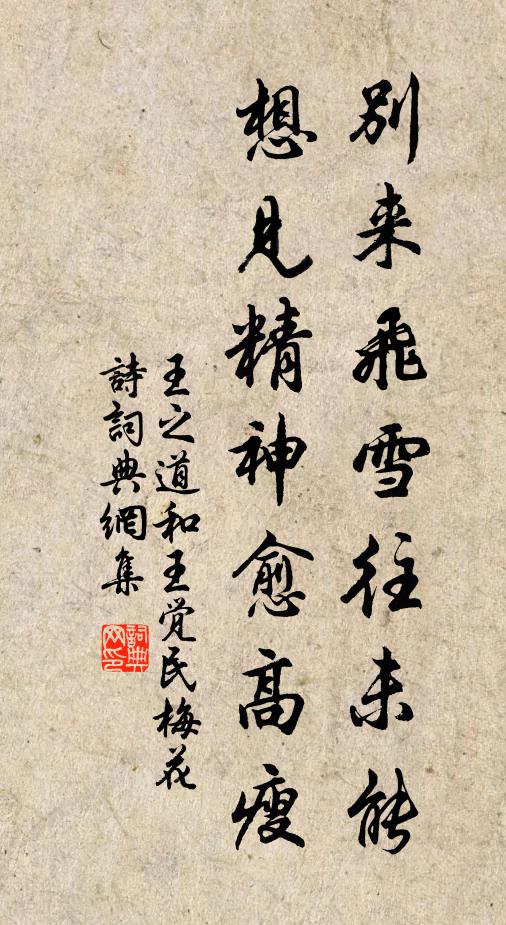 別来飛雪往未能
想見精神愈高瘦
王之道和王覚民梅花
詩詞典網集
詞典
网印